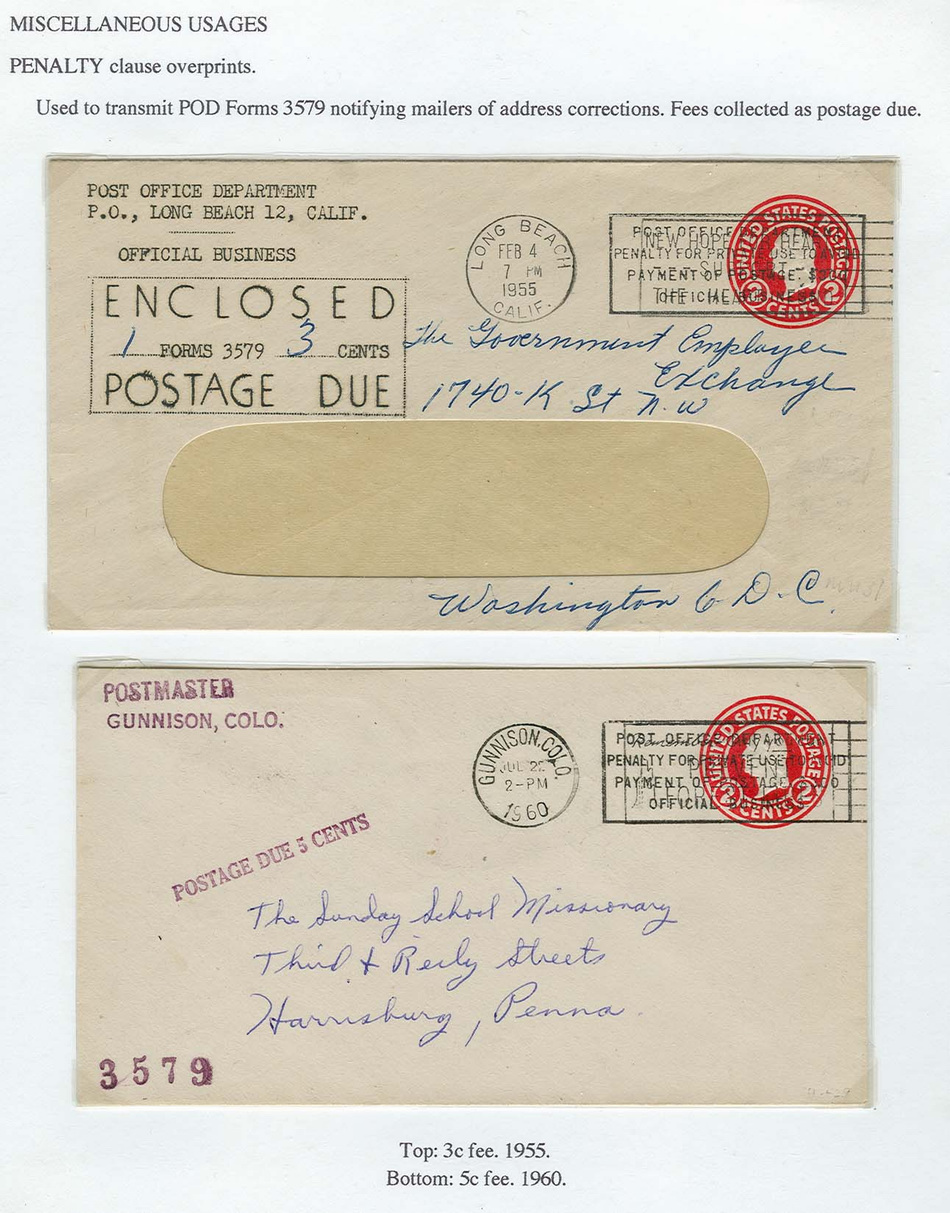 MISCELLANEOUS USAGES
PENALTY clause overprints.
Used to transmit POD Forms 3579 notifying mailers of address corrections. Fees collected as postage due.
POST OFFICE DEPARTMENT
P.O., LONG BEACH 12, CALIF.
OFFICIAL BUSINESS
ENCLOSED
1 FORMS 3579 3 CENTS
POSTAGE DUE
LONG BEACH
FEB 4
7 PM
1955
CALIF.
UNITED STATES POSTAGE
2 CENTS 2
POST OFFICE DEPARTMENT
PENALTY FOR PRIVATE USE TO AVOID
PAYMENT OF POSTAGE, $300
OFFICIAL BUSINESS
NEW HOPE
HEART
THE HEART
The Government Employee
Exchange
1740-K St N.W
Washington 6 D.C.
POSTMASTER
GUNNISON, COLO.
GUNNISON, COLO.
JUL 22
2-PM
1960
UNITED STATES POSTAGE
2 CENTS 2
POST OFFICE DEPARTMENT
PENALTY FOR PRIVATE USE TO AVOID
PAYMENT OF POSTAGE, $300
OFFICIAL BUSINESS
POSTAGE DUE 5 CENTS
The Sunday School Missionary
Third & Reily Streets
Harrisburg, Penna.
3579
Top: 3c fee. 1955.
Bottom: 5c fee. 1960.